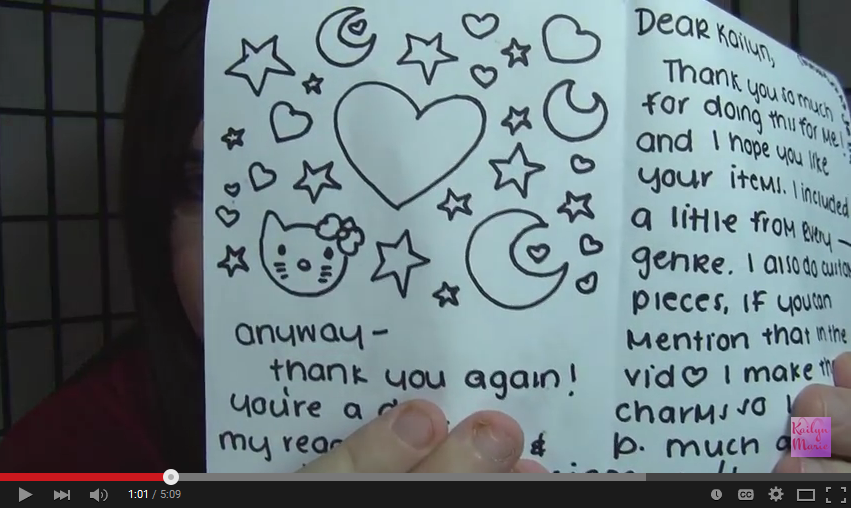 anyway –
thank you again!
you're a
my
&
Dear Kailyn,
Thank you so much
for doing this for me!
and I hope you like
your items. I included
a little from every –
genre. I also do
pieces, if you can
mention that in the
vid♡ I make
charms so I
p. much
Kailyn
Marie
1:01 / 5:09
CC